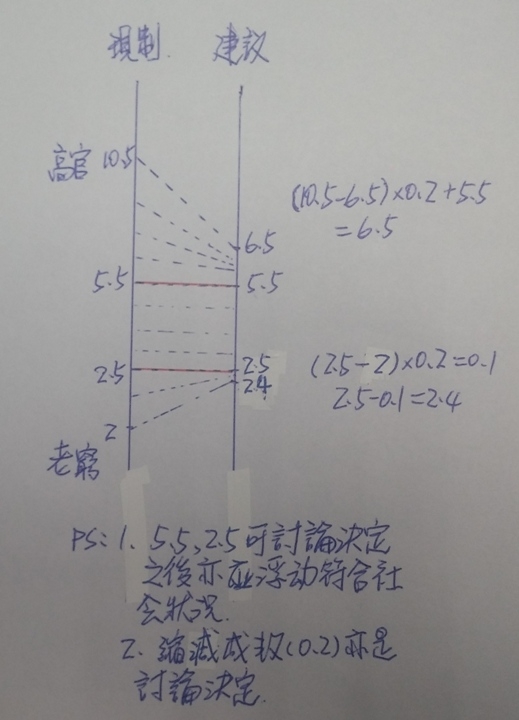 現制 建議
高官 10.5
(10.5-6.5)×0.2+5.5
=6.5
6.5
5.5 5.5
2.5 2.5
2.4
(2.5-2)×0.2=0.1
2.5-0.1=2.4
2
老窮
PS: 1. 5.5、2.5可討論決定
之後亦应浮动符合社
会狀況.
2. 縮減成数(0.2)亦是
討論決定.